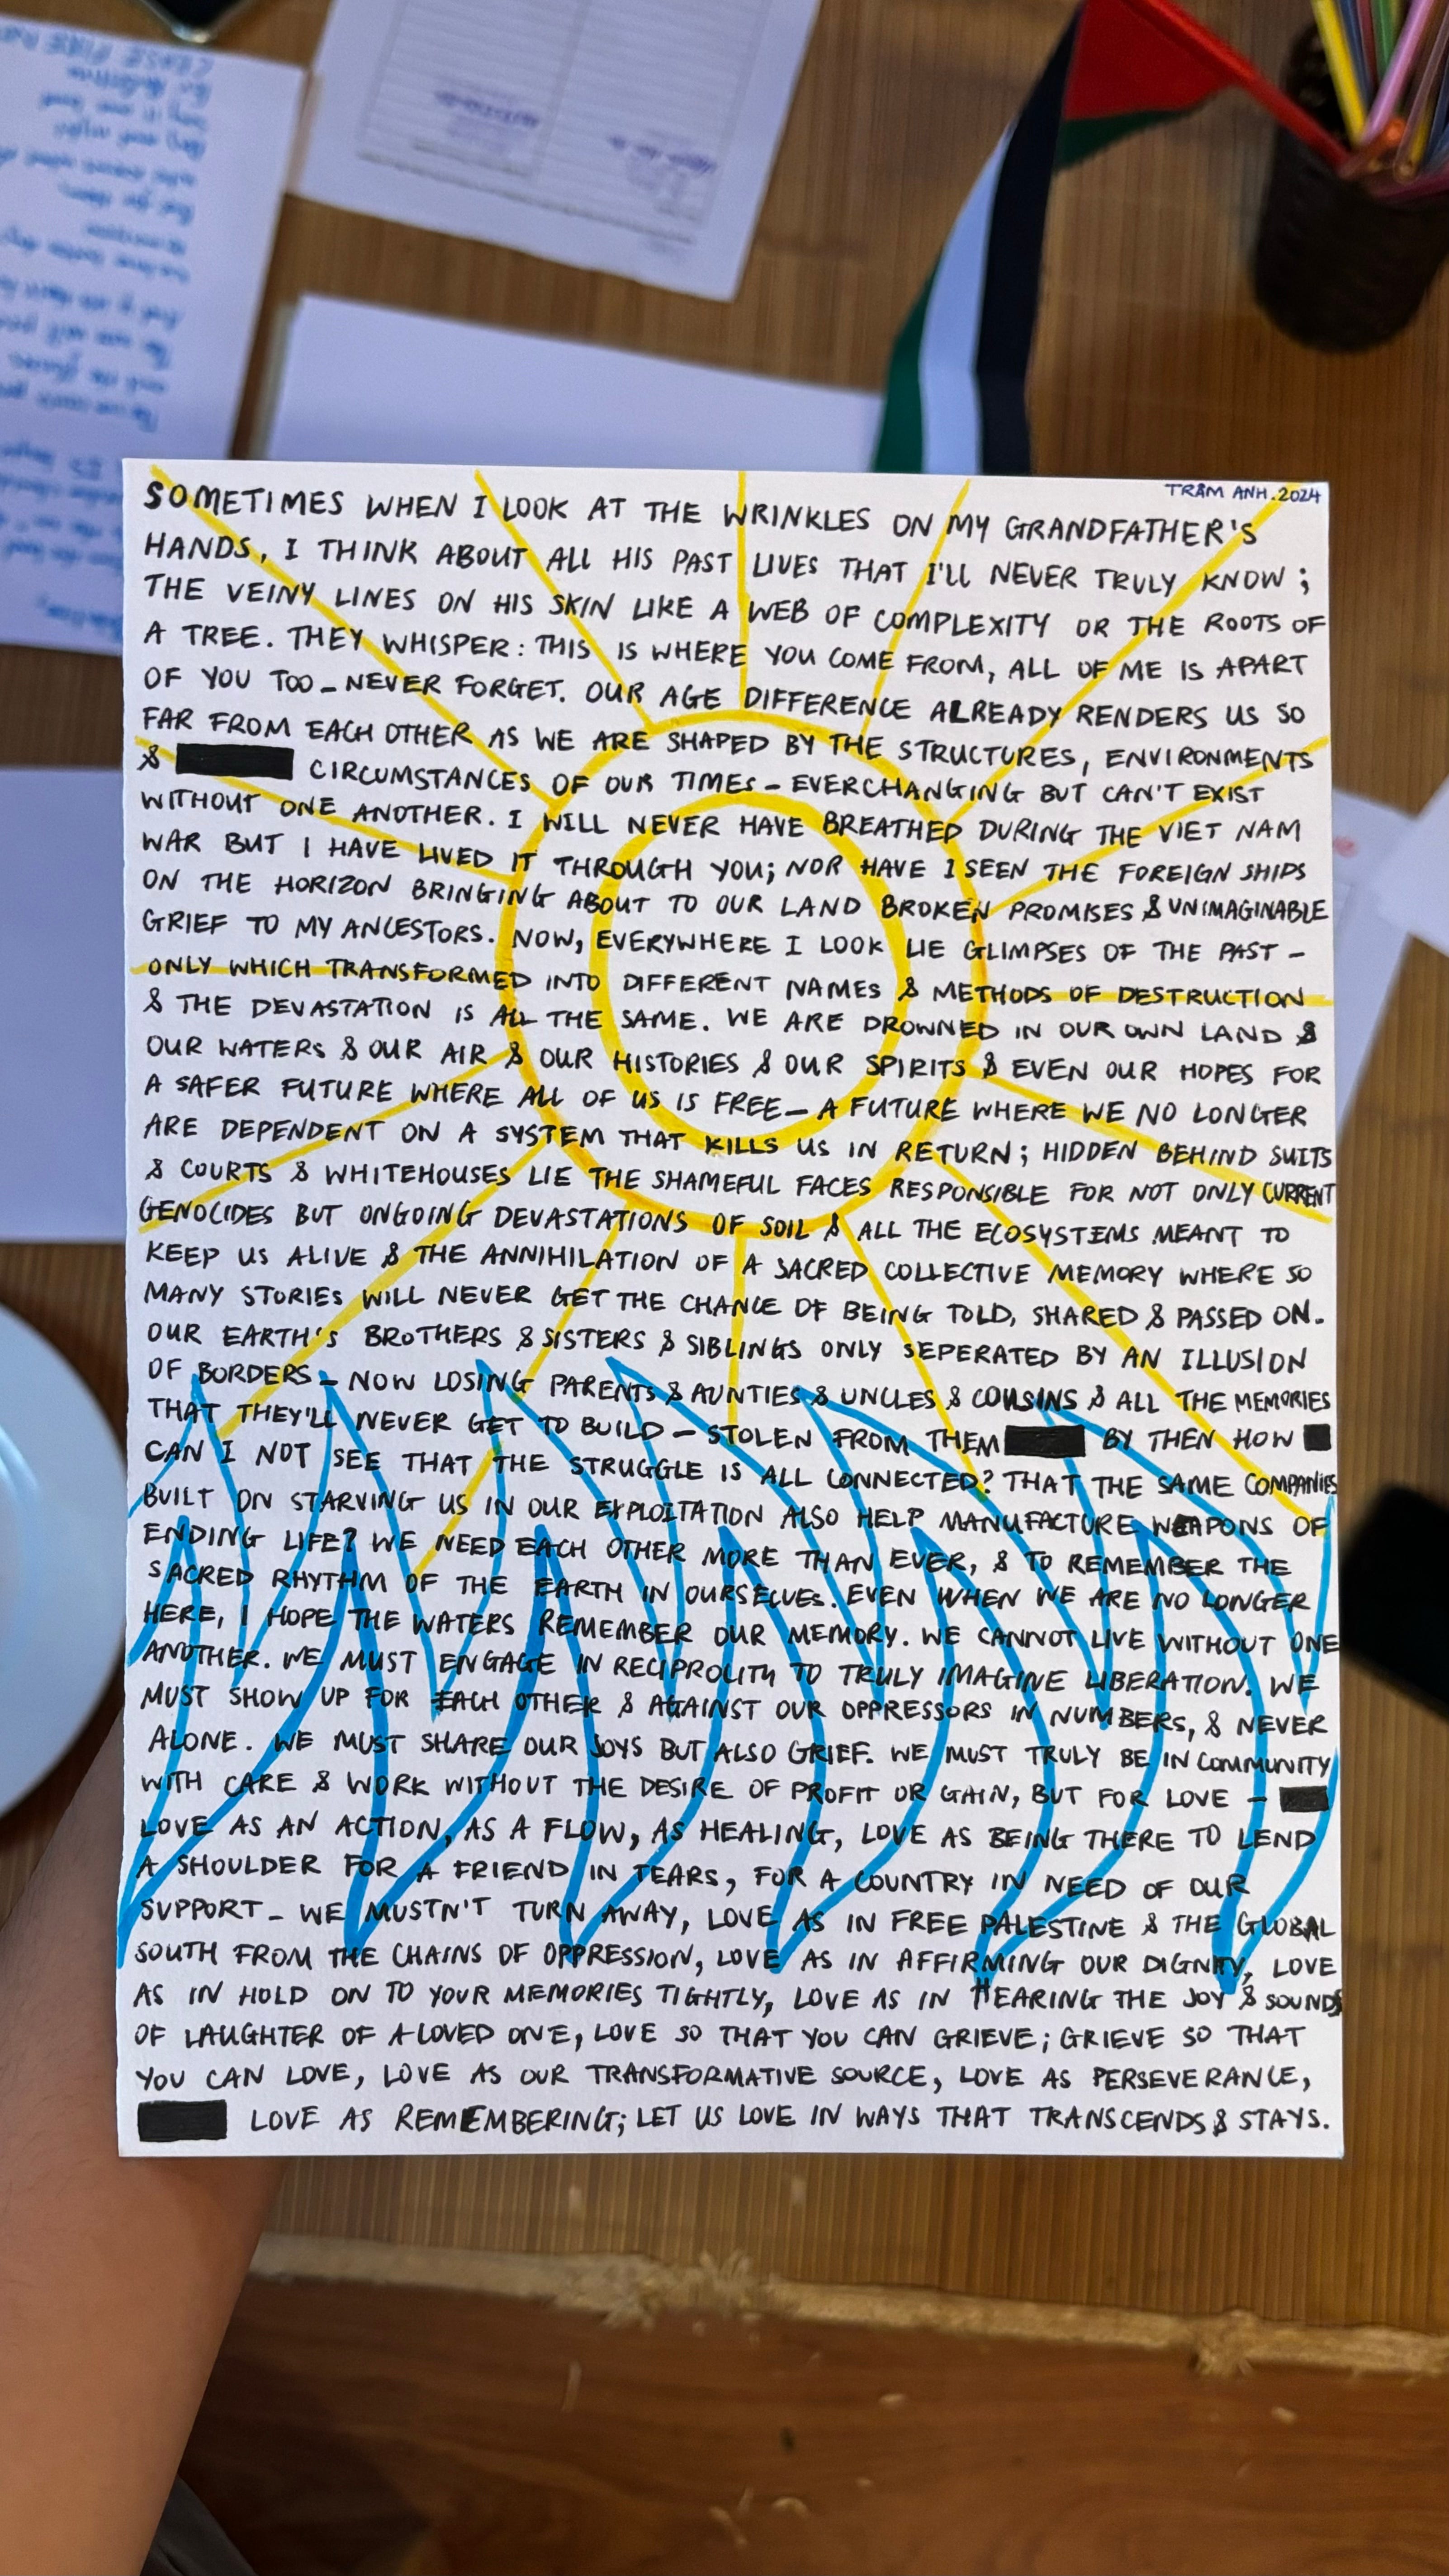 TRÂM ANH. 2024
SOMETIMES WHEN I LOOK AT THE WRINKLES ON MY GRANDFATHER'S
HANDS, I THINK ABOUT ALL HIS PAST LIVES THAT I'LL NEVER TRULY KNOW;
THE VEINY LINES ON HIS SKIN LIKE A WEB OF COMPLEXITY OR THE ROOTS OF
A TREE. THEY WHISPER: THIS IS WHERE YOU COME FROM, ALL OF ME IS APART
OF YOU TOO – NEVER FORGET. OUR AGE DIFFERENCE ALREADY RENDERS US SO
FAR FROM EACH OTHER AS WE ARE SHAPED BY THE STRUCTURES, ENVIRONMENTS
& CIRCUMSTANCES OF OUR TIMES – EVERCHANGING BUT CAN'T EXIST
WITHOUT ONE ANOTHER. I WILL NEVER HAVE BREATHED DURING THE VIET NAM
WAR BUT I HAVE LIVED IT THROUGH YOU; NOR HAVE I SEEN THE FOREIGN SHIPS
ON THE HORIZON BRINGING ABOUT TO OUR LAND BROKEN PROMISES & UNIMAGINABLE
GRIEF TO MY ANCESTORS. NOW, EVERYWHERE I LOOK LIE GLIMPSES OF THE PAST –
ONLY WHICH TRANSFORMED INTO DIFFERENT NAMES & METHODS OF DESTRUCTION
& THE DEVASTATION IS ALL THE SAME. WE ARE DROWNED IN OUR OWN LAND &
OUR WATERS & OUR AIR & OUR HISTORIES & OUR SPIRITS & EVEN OUR HOPES FOR
A SAFER FUTURE WHERE ALL OF US IS FREE – A FUTURE WHERE WE NO LONGER
ARE DEPENDENT ON A SYSTEM THAT KILLS US IN RETURN; HIDDEN BEHIND SUITS
& COURTS & WHITEHOUSES LIE THE SHAMEFUL FACES RESPONSIBLE FOR NOT ONLY CURRENT
GENOCIDES BUT ONGOING DEVASTATIONS OF SOIL & ALL THE ECOSYSTEMS MEANT TO
KEEP US ALIVE & THE ANNIHILATION OF A SACRED COLLECTIVE MEMORY WHERE SO
MANY STORIES WILL NEVER GET THE CHANCE OF BEING TOLD, SHARED & PASSED ON.
OUR EARTH'S BROTHERS & SISTERS & SIBLINGS ONLY SEPERATED BY AN ILLUSION
OF BORDERS – NOW LOSING PARENTS & AUNTIES & UNCLES & COUSINS & ALL THE MEMORIES
THAT THEY'LL NEVER GET TO BUILD – STOLEN FROM THEM BY THEN HOW
CAN I NOT SEE THAT THE STRUGGLE IS ALL CONNECTED? THAT THE SAME COMPANIES
BUILT ON STARVING US IN OUR EXPLOITATION ALSO HELP MANUFACTURE WEAPONS OF
ENDING LIFE? WE NEED EACH OTHER MORE THAN EVER, & TO REMEMBER THE
SACRED RHYTHM OF THE EARTH IN OURSELVES. EVEN WHEN WE ARE NO LONGER
HERE, I HOPE THE WATERS REMEMBER OUR MEMORY. WE CANNOT LIVE WITHOUT ONE
ANOTHER. WE MUST ENGAGE IN RECIPROCITY TO TRULY IMAGINE LIBERATION. WE
MUST SHOW UP FOR EACH OTHER & AGAINST OUR OPPRESSORS IN NUMBERS, & NEVER
ALONE. WE MUST SHARE OUR JOYS BUT ALSO GRIEF. WE MUST TRULY BE IN COMMUNITY
WITH CARE & WORK WITHOUT THE DESIRE OF PROFIT OR GAIN, BUT FOR LOVE –
LOVE AS AN ACTION, AS A FLOW, AS HEALING, LOVE AS BEING THERE TO LEND
A SHOULDER FOR A FRIEND IN TEARS, FOR A COUNTRY IN NEED OF OUR
SUPPORT – WE MUSTN'T TURN AWAY, LOVE AS IN FREE PALESTINE & THE GLOBAL
SOUTH FROM THE CHAINS OF OPPRESSION, LOVE AS IN AFFIRMING OUR DIGNITY, LOVE
AS IN HOLD ON TO YOUR MEMORIES TIGHTLY, LOVE AS IN HEARING THE JOY & SOUNDS
OF LAUGHTER OF A LOVED ONE, LOVE SO THAT YOU CAN GRIEVE; GRIEVE SO THAT
YOU CAN LOVE, LOVE AS OUR TRANSFORMATIVE SOURCE, LOVE AS PERSEVERANCE,
LOVE AS REMEMBERING; LET US LOVE IN WAYS THAT TRANSCENDS & STAYS.